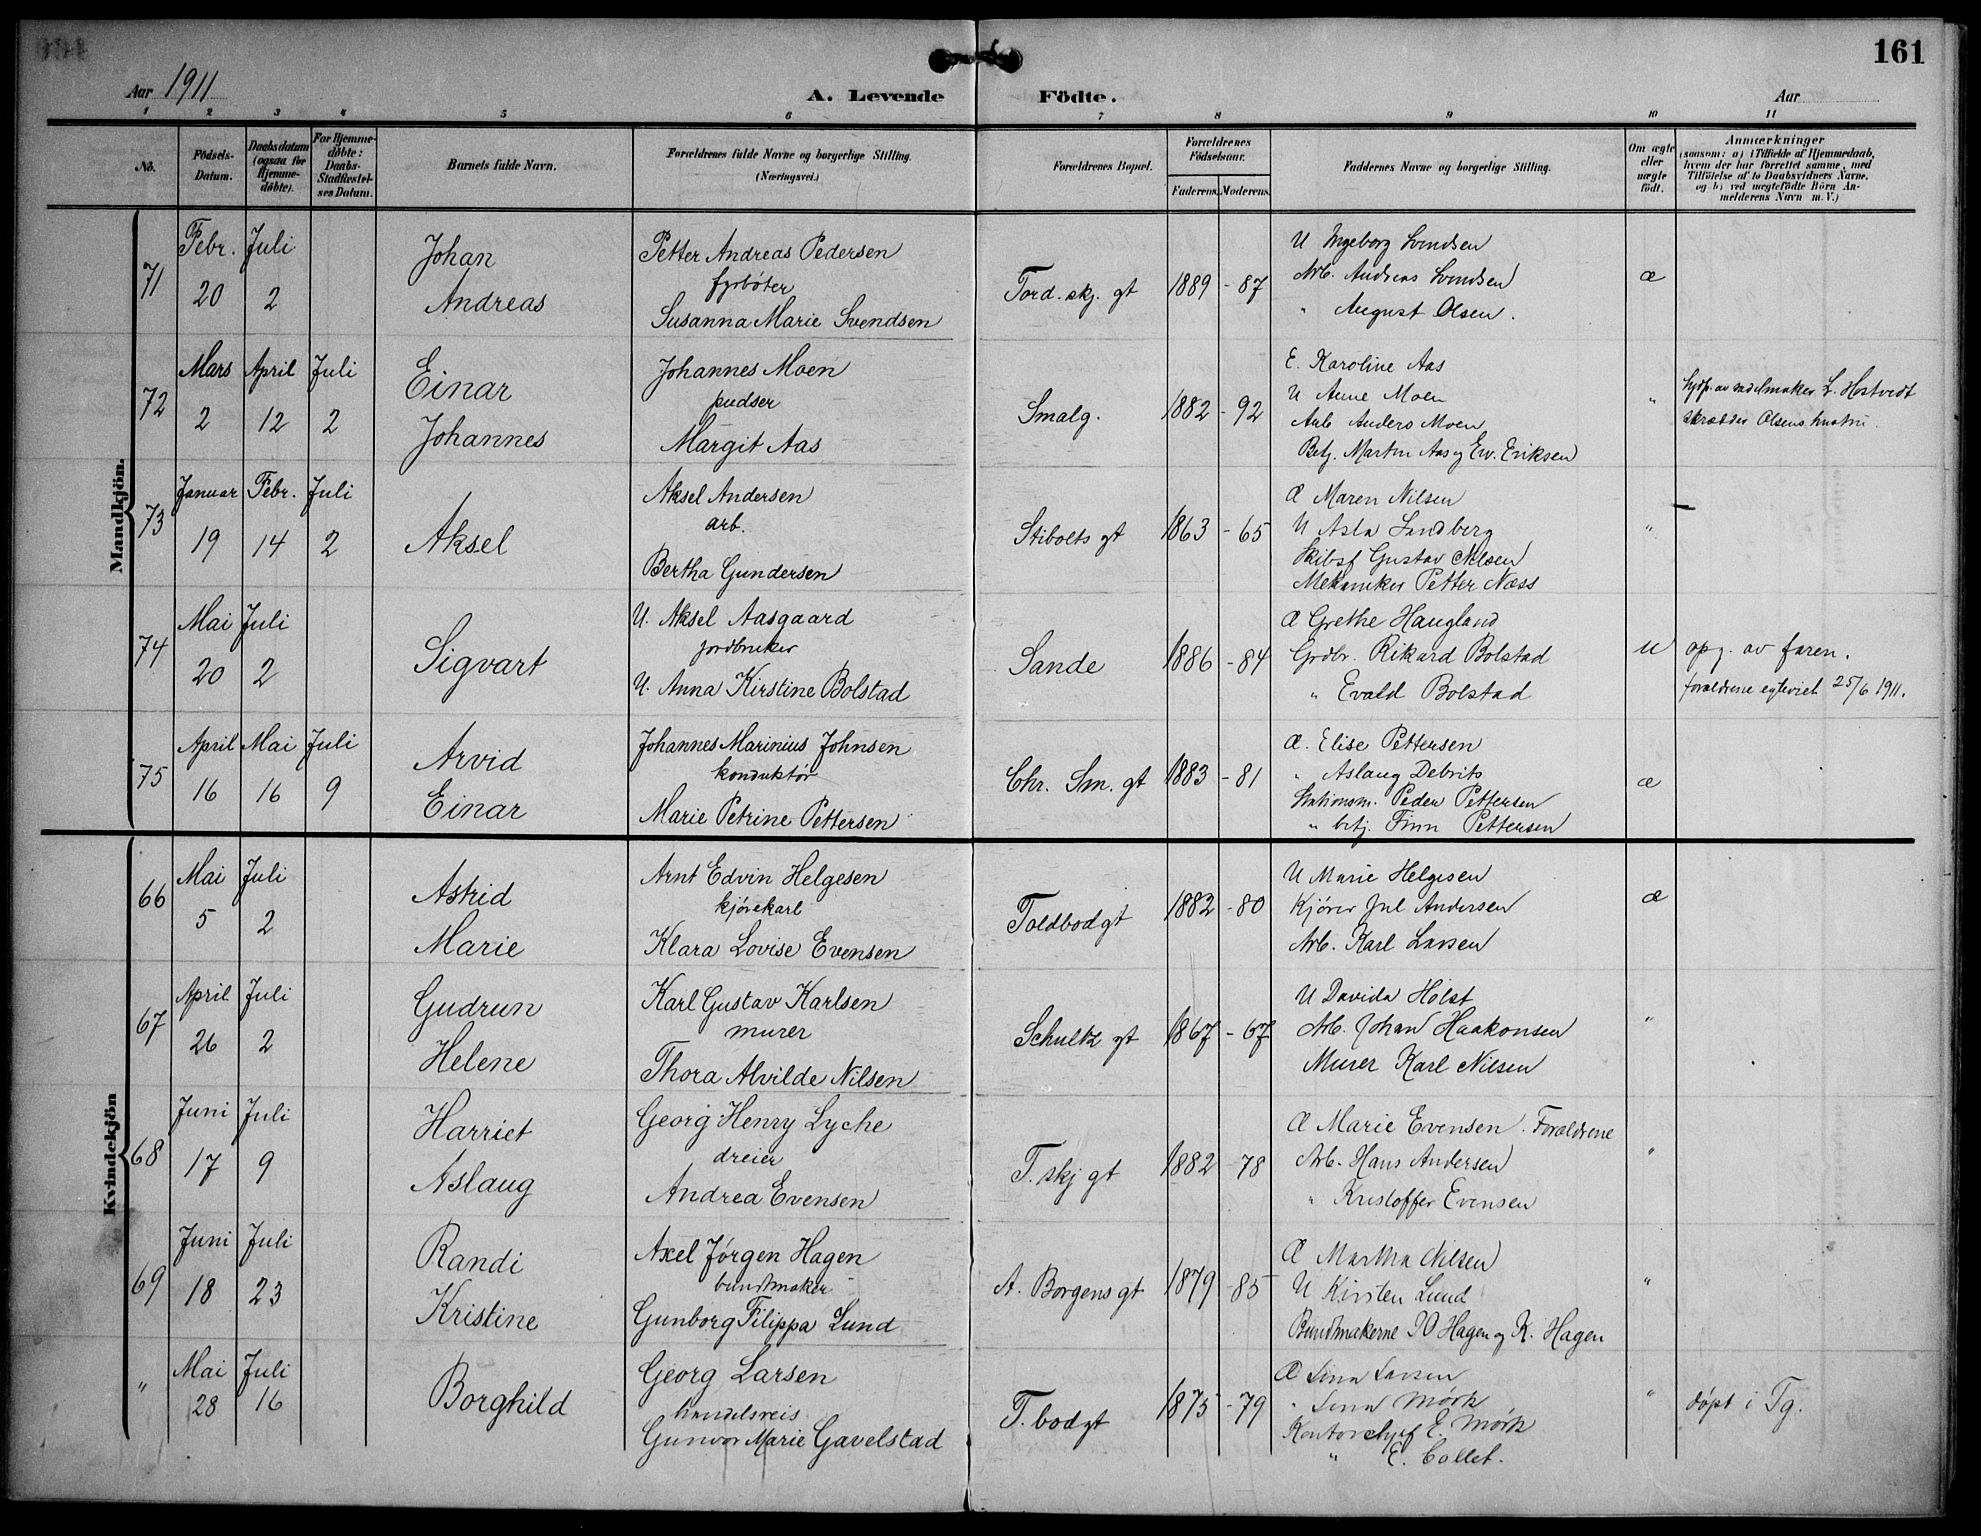 161
Aar 1911
A. Levende Födte.
Aar
1 2 3 4 5 6 7 8 9 10 11
No.
Födsels-Datum.
Daabsdatum (ogsaa for Hjemme-döbte).
For Hjemme-döbte: Daabs-Stadfæstel-ses Datum.
Barnets fulde Navn.
Forældrenes fulde Navne og borgerlige Stilling.
(Næringsvei.)
Forældrenes Bopæl.
Forældrenes Födselsaar.
Faderens. Moderens.
Faddernes Navne og borgerlige Stilling.
Om ægte eller uægte födt.
Anmærkninger
(saasom: a) i Tilfælde af Hjemmedaab,
hvem der har forrettet samme, med
Tilföielse af to Daabsvidners Navne,
og b) ved uægtefödte Börn An-
melderens Navn m. V.)
Mandkjön.
71
Febr. 20
Juli 2
Johan
Andreas
Petter Andreas Pedersen
fyrbøter
Susanna Marie Svendsen
Tord. skj. gt
1889 - 87
U Ingeborg Svendsen
Arb. Andreas Svendsen
" August Olsen.
æ
72
Mars 2
April 12
Juli 2
Einar
Johannes
Johannes Moen
pudser
Margit Aas
Smalg.
1882 - 92
E. Karoline Aas
U Anne Moen
Arb Anders Moen
Betj. Martin Aas og Ew. Eriksen
"
hjdp. av sadelmaker L. Hostvedt
skrædder Olsens hustru.
73
Januar 19
Febr. 14
Juli 2
Aksel
Aksel Andersen
arb.
Bertha Gundersen
Stibolts gt
1863 - 65
Æ Maren Nilsen
U Asta Sandberg
Skibsf Gustav Nilsen
Mekaniker Petter Næss
"
74
Mai 20
Juli 2
Sigvart
U. Aksel Aasgaard
jordbruker
U. Anna Kirstine Bolstad
Sande
1886 - 84
Æ Grethe Haugland
Grdbr. Rikard Bolstad
" Evald Bolstad
u
opg. av faren.
forældrene egteviet 25/6 1911.
75
April 16
Mai 16
Juli 9
Arvid
Einar
Johannes Marinius Johnsen
konduktør
Marie Petrine Pettersen
Chr. Sm. gt
1883 - 81
Æ. Elise Pettersen
" Aslaug Debrits
Stationsm. Peder Pettersen
" betj. Finn Pettersen
æ
Kvindekjön
66
Mai 5
Juli 2
Astrid
Marie
Arnt Edvin Helgesen
kjørekarl
Klara Lovise Evensen
Toldbodgt
1882 - 80
U Marie Helgesen
Kjører Jul Andersen
Arb. Karl Larsen
æ
67
April 26
Juli 2
Gudrun
Helene
Karl Gustav Karlsen
murer
Thora Alvilde Nilsen
Schultz gt
1867 - 67
U Davida Holst
Arb. Johan Haakonsen
Murer Karl Nilsen
"
68
Juni 17
Juli 9
Harriet
Aslaug
Georg Henry Lyche
dreier
Andrea Evensen
T. skj gt
1882 - 78
Æ Marie Evensen. Forældrene
Arb. Hans Andersen
" Kristoffer Evensen
"
69
Juni 18
Juli 23
Randi
Kristine
Axel Jørgen Hagen
bundtmaker
Gunborg Filippa Lund
A. Borgens gt
1879 - 85
Æ Martha Nilsen
U Kirsten Lund
Bundtmakerne Hagen og K. Hagen
"
"
Mai 28
Juli 16
Borghild
Georg Larsen
handelsreis
Gunvor Marie Gavelstad
T. bodgt
1875 - 79
Æ Sina Larsen
" Mørk
Kontorchef E. Mørk
" E. Collet.
"
døpt i Tg.